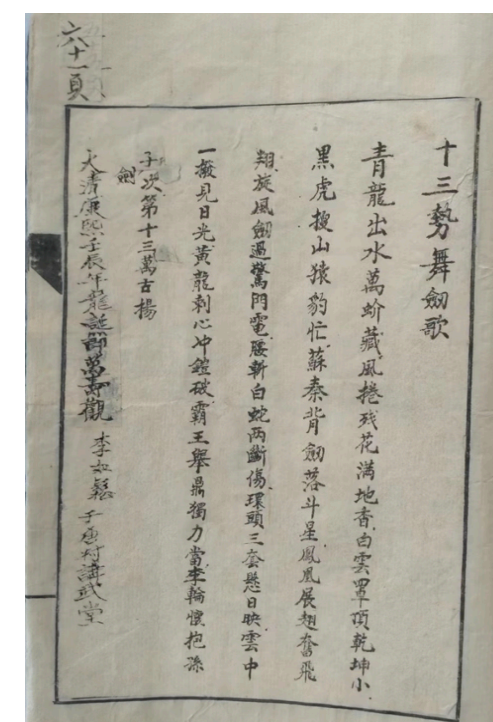 六十一頁
十三勢舞劍歌
青龍出水萬蚧藏風捲残花滿地香白雲罩頂乾坤小
黑虎搜山猿豹忙蘇秦背劍落斗星鳳凰展翅奮飛
翔旋風劍過驚閃電腰斬白蛇两斷傷環頭三套懸日映雲中
一撥見日光黃龍刺心冲鎧破霸王舉鼎獨力當李輪懷抱孫
子次第十三萬古揚
劍
大清康熙壬辰年龍 萬壽觀 李如鬆 于唐村講武堂